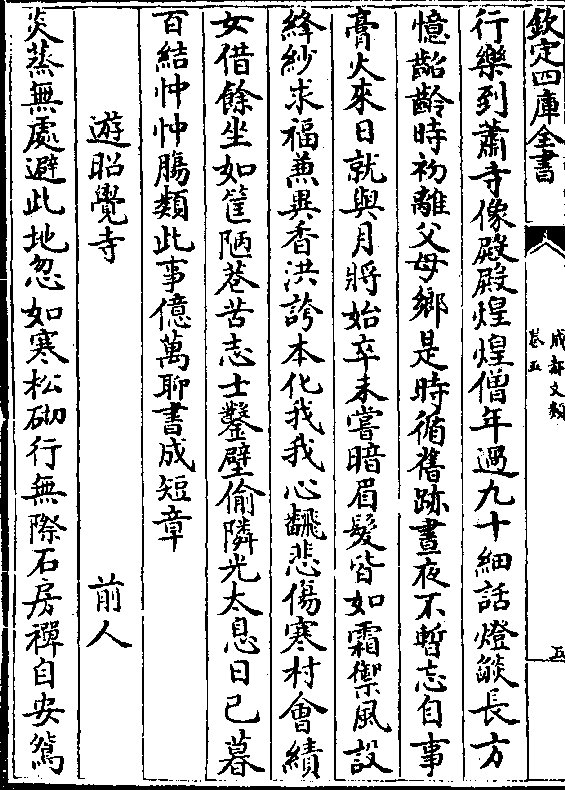 欽定四庫全書
成都文類
卷五
五
行樂到蕭寺像殿殿煌煌僧年過九十細話燈燄長方
憶齠齡時初離父母鄉是時循舊跡晝夜不暫忘自事
膏火來日就與月將始卒未嘗暗眉髮皆如霜禦風設
絳紗求福兼異香洪誇本化我我心翻悲傷寒村會績
女借餘坐如筐陋巷苦志士鑿壁偷隣光太息日已暮
百結忡忡腸類此事億萬聊書成短章
遊昭覺寺 前人
炎蒸無處避此地忽如寒松砌行無際石房禪自安鴛